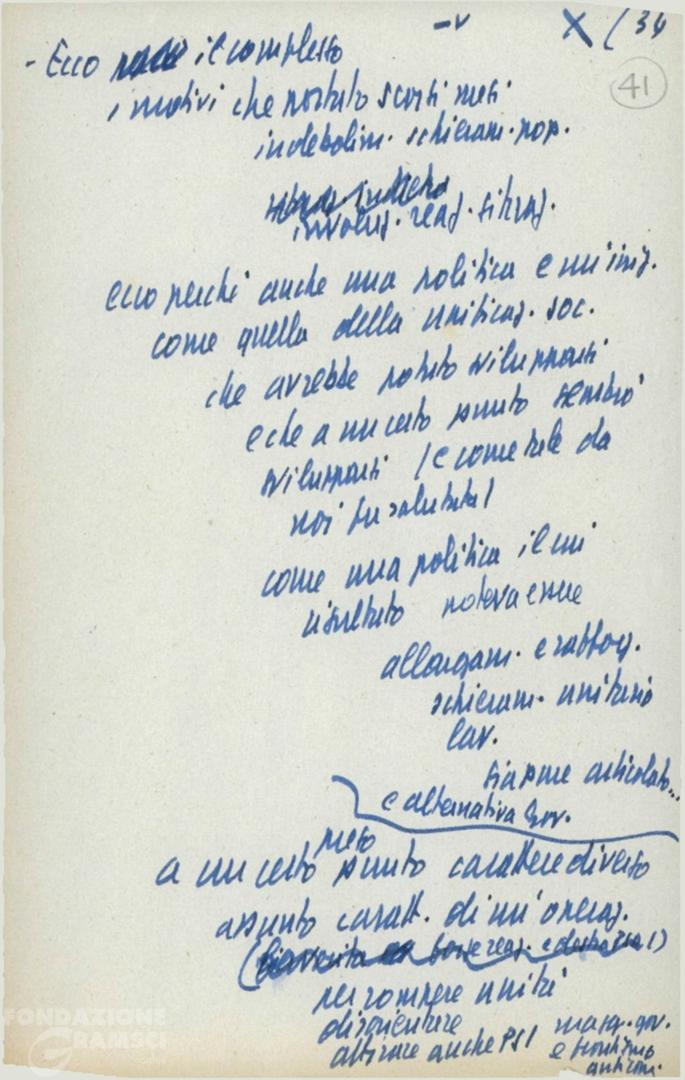 -v X (34
41
- Ecco il complesso
i motivi che portato scorsi mesi
indebolim. schieram. pop.
involuz. reaz. situaz.
ecco perché anche una politica e un'iniz.
come quella della unificaz. soc.
che avrebbe potuto svilupparsi
e che a un certo punto sembrò
svilupparsi (e come tale da
noi fu salutata)
come una politica il cui
risultato poteva essere
allargam. e rafforz.
schieram. unitario
lav.
sia pure articolato...
e alternativa gov.
preso
a un certo punto carattere diverso
assunto caratt. di un'operaz.
( forze reaz. e destra PSI)
per rompere unità
disorientare
attirare anche PSI
magg. gov.
e frontismo
anticom.
FONDAZIONE
GRAMSCI